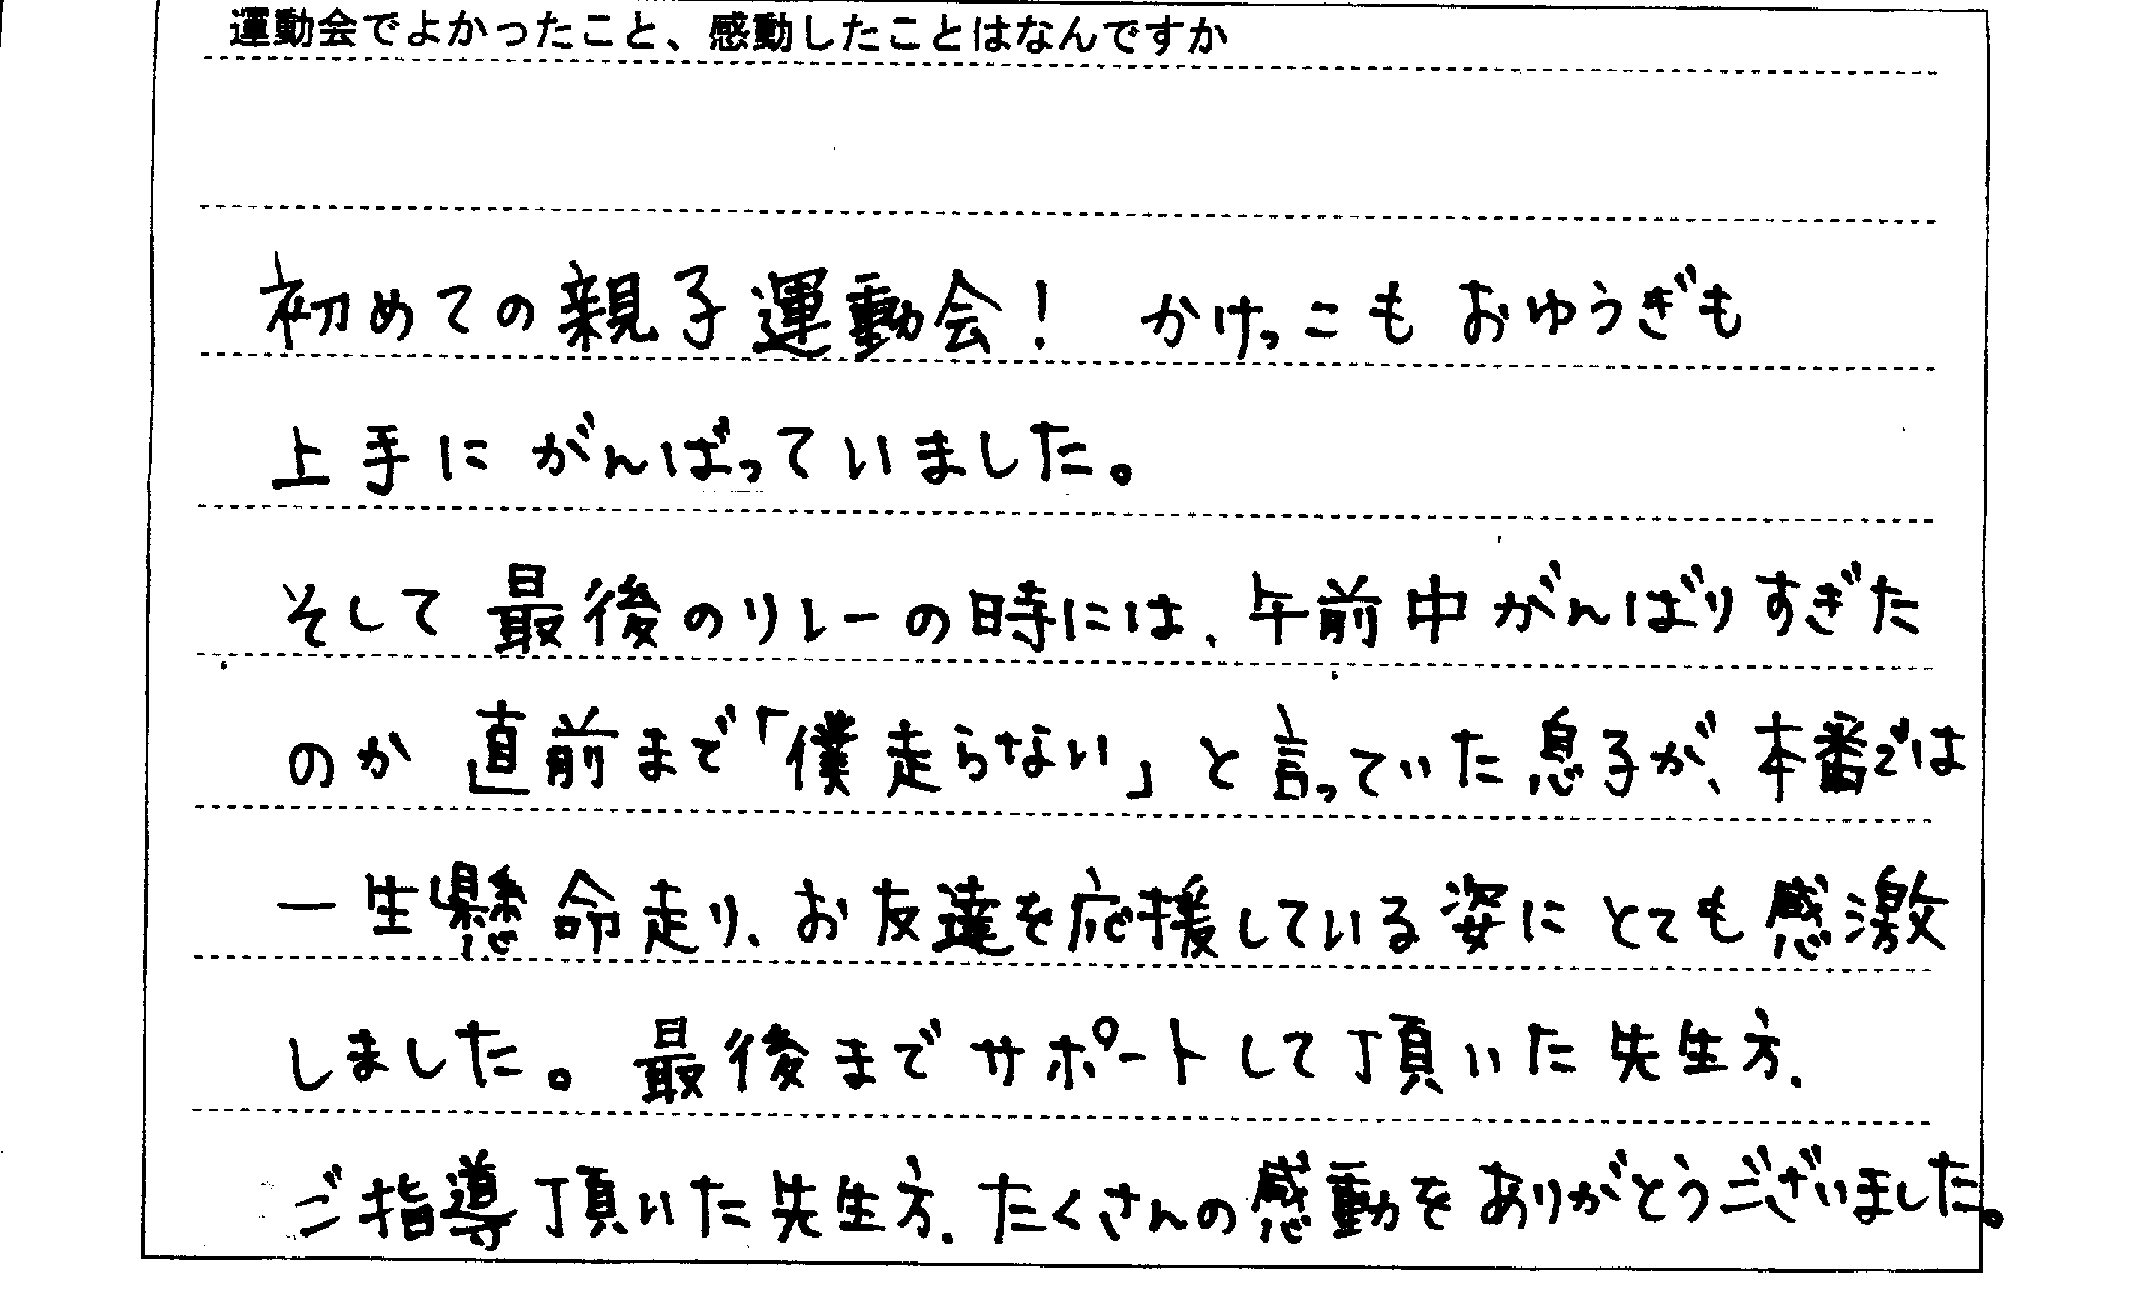 運動会でよかったこと、感動したことはなんですか
初めての親子運動会! かけっこもおゆうぎも
上手にがんばっていました。
そして最後のリレーの時には、午前中がんばりすぎた
のか直前まで「僕走らない」と言っていた息子が、本番では
一生懸命走り、お友達を応援している姿にとても感激
しました。最後までサポートして頂いた先生方、
ご指導頂いた先生方、たくさんの感動をありがとうございました。